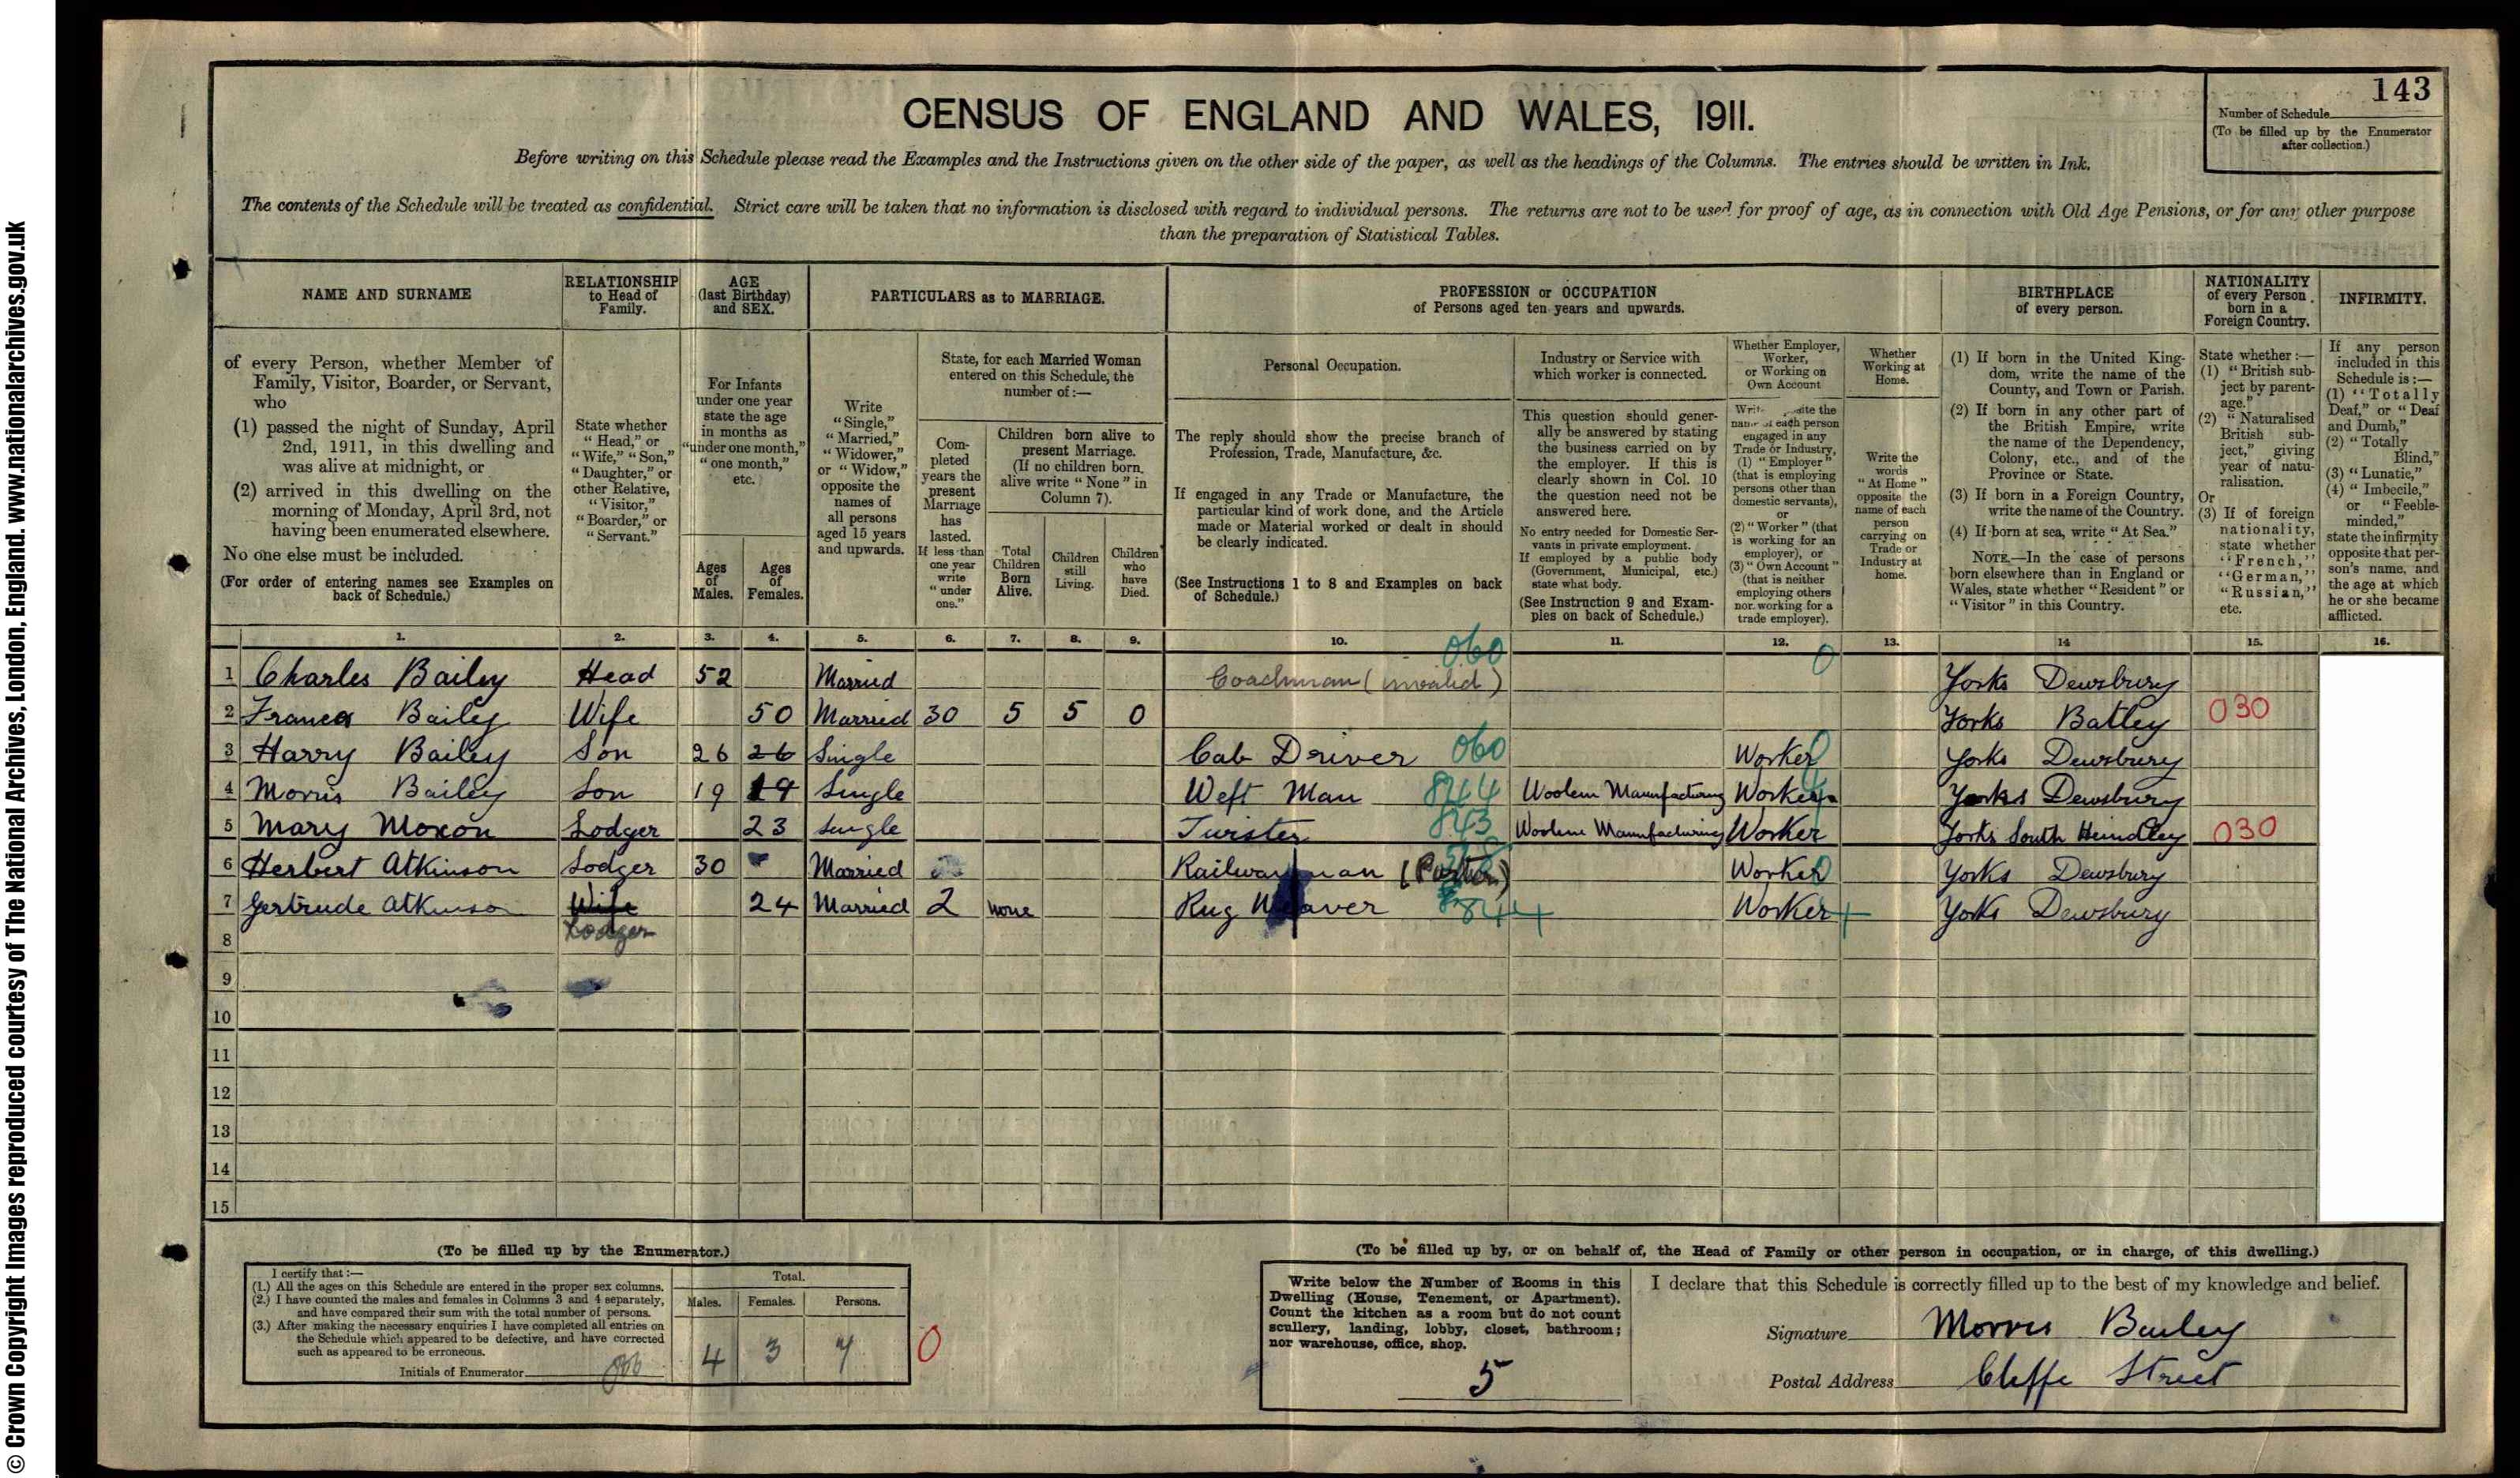 © Crown Copyright Images reproduced courtesy of The National Archives, London, England. www.nationalarchives.gov.uk
143
Number of Schedule
(To be filled up by the Enumerator
after collection.)
CENSUS OF ENGLAND AND WALES, 1911.
Before writing on this Schedule please read the Examples and the Instructions given on the other side of the paper, as well as the headings of the Columns. The entries should be written in Ink.
The contents of the Schedule will be treated as confidential. Strict care will be taken that no information is disclosed with regard to individual persons. The returns are not to be used for proof of age, as in connection with Old Age Pensions, or for any other purpose
than the preparation of Statistical Tables.
NAME AND SURNAME
of every Person, whether Member of
Family, Visitor, Boarder, or Servant,
who
(1) passed the night of Sunday, April
2nd, 1911, in this dwelling and
was alive at midnight, or
(2) arrived in this dwelling on the
morning of Monday, April 3rd, not
having been enumerated elsewhere.
No one else must be included.
(For order of entering names see Examples on
back of Schedule.)
RELATIONSHIP
to Head of
Family.
State whether
"Head," or
"Wife," "Son,"
"Daughter," or
other Relative,
"Visitor,"
"Boarder," or
"Servant."
AGE
(last Birthday)
and SEX.
For Infants
under one year
state the age
in months as
"under one month,"
"one month,"
etc.
Ages
of
Males.
Ages
of
Females.
PARTICULARS as to MARRIAGE.
Write
"Single,"
"Married,"
"Widower,"
or "Widow,"
opposite the
names of
all persons
aged 15 years
and upwards.
State, for each Married Woman
entered on this Schedule, the
number of:—
Com-
pleted
years the
present
Marriage
has
lasted.
If less than
one year
write
"under
one."
Children born alive to
present Marriage.
(If no children born
alive write "None" in
Column 7).
Total
Children
Born
Alive.
Children
still
Living.
Children
who
have
Died.
PROFESSION or OCCUPATION
of Persons aged ten years and upwards.
Personal Occupation.
The reply should show the precise branch of
Profession, Trade, Manufacture, &c.
If engaged in any Trade or Manufacture, the
particular kind of work done, and the Article
made or Material worked or dealt in should
be clearly indicated.
(See Instructions 1 to 8 and Examples on back
of Schedule.)
Industry or Service with
which worker is connected.
This question should gener-
ally be answered by stating
the business carried on by
the employer. If this is
clearly shown in Col. 10
the question need not be
answered here.
No entry needed for Domestic Ser-
vants in private employment.
If employed by a public body
(Government, Municipal, etc.)
state what body.
(See Instruction 9 and Exam-
ples on back of Schedule.)
Whether Employer,
Worker,
or Working on
Own Account
the
each person
engaged in any
Trade or Industry,
(1) "Employer"
(that is employing
persons other than
domestic servants),
or
(2) "Worker" (that
is working for an
employer), or
(3) "Own Account"
(that is neither
employing others
nor working for a
trade employer).
Whether
Working at
Home.
Write the
words
"At Home"
opposite the
name of each
person
carrying on
Trade or
Industry at
home.
BIRTHPLACE
of every person.
(1) If born in the United King-
dom, write the name of the
County, and Town or Parish.
(2) If born in any other part of
the British Empire, write
the name of the Dependency,
Colony, etc., and of the
Province or State.
(3) If born in a Foreign Country,
write the name of the Country.
(4) If born at sea, write "At Sea."
NOTE.—In the case of persons
born elsewhere than in England or
Wales, state whether "Resident" or
"Visitor" in this Country.
NATIONALITY
of every Person
born in a
Foreign Country.
State whether:—
(1) "British sub-
ject by parent-
age."
(2) "Naturalised
British sub-
ject," giving
year of natu-
ralisation.
Or
(3) If of foreign
nationality,
state whether
"French,"
"German,"
"Russian,"
etc.
INFIRMITY.
If any person
included in this
Schedule is:—
(1) "Totally
Deaf," or "Deaf
and Dumb,"
(2) "Totally
Blind,"
(3) "Lunatic,"
(4) "Imbecile,"
or "Feeble-
minded,"
state the infirmity
opposite that per-
son's name, and
the age at which
he or she became
afflicted.
1. 2. 3. 4. 5. 6. 7. 8. 9. 10. 11. 12. 13. 14 15. 16.
060 0
1 Charles Bailey Head 52 Married Coachman (invalid) Yorks Dewsbury
2 Frances Bailey Wife 50 Married 30 5 5 0 Yorks Batley 030
3 Harry Bailey Son 26 26 Single Cab Driver 060 Worker 0 Yorks Dewsbury
4 Morris Bailey Son 19 19 Single Weft Man 844 Woolen Manufacturing Worker Yorks Dewsbury
5 Mary Moxon Lodger 23 Single Twister 843 Woolen Manufacturing Worker Yorks South Heindley 030
6 Herbert Atkinson Lodger 30 Married Railwayman (Porter) Worker 0 Yorks Dewsbury
7 Gertrude Atkinson Wife 24 Married 2 none Rug Weaver 844 Worker Yorks Dewsbury
8 Lodger
9
10
11
12
13
14
15
(To be filled up by the Enumerator.)
I certify that:—
(1.) All the ages on this Schedule are entered in the proper sex columns.
(2.) I have counted the males and females in Columns 3 and 4 separately,
and have compared their sum with the total number of persons.
(3.) After making the necessary enquiries I have completed all entries on
the Schedule which appeared to be defective, and have corrected
such as appeared to be erroneous.
Initials of Enumerator
Total.
Males. Females. Persons.
4 3 7 0
(To be filled up by, or on behalf of, the Head of Family or other person in occupation, or in charge, of this dwelling.)
Write below the Number of Rooms in this
Dwelling (House, Tenement, or Apartment).
Count the kitchen as a room but do not count
scullery, landing, lobby, closet, bathroom;
nor warehouse, office, shop.
5
I declare that this Schedule is correctly filled up to the best of my knowledge and belief.
Signature Morris Bailey
Postal Address Cleffe Street